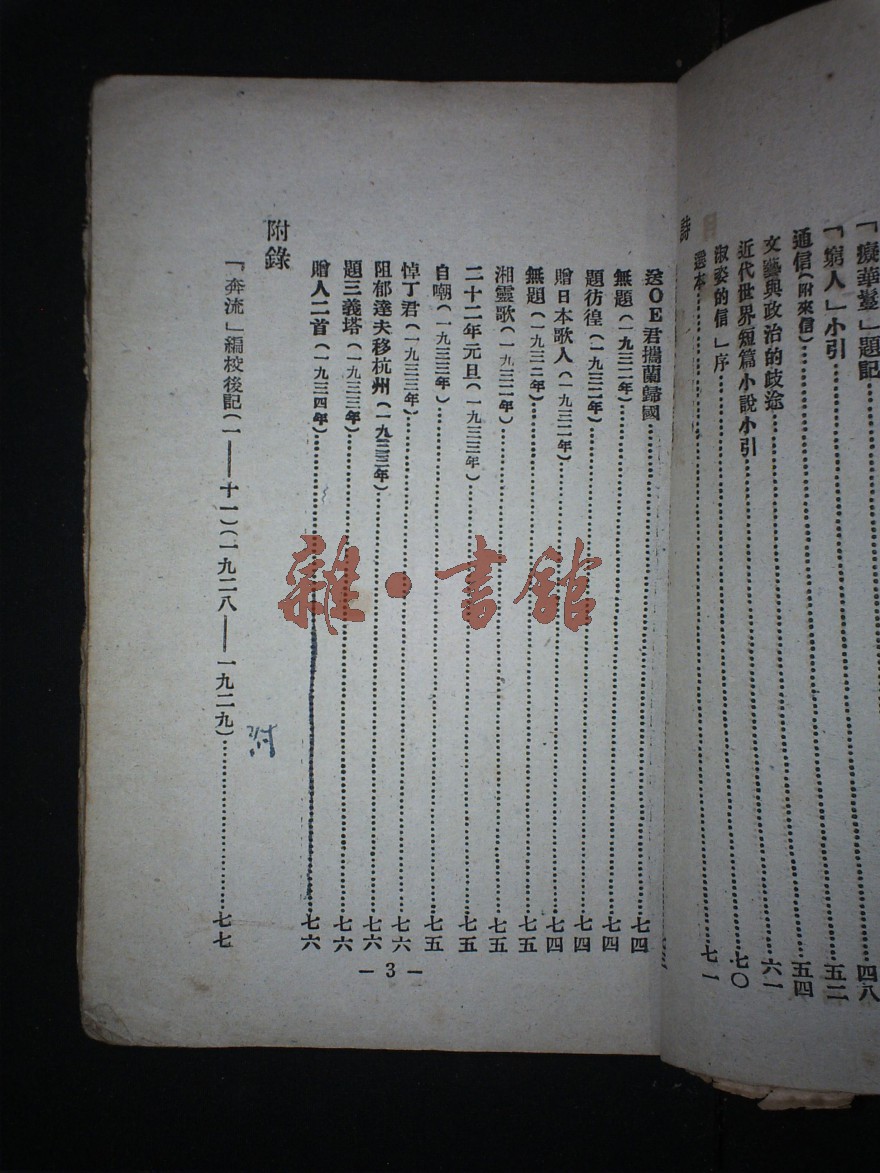 「癡華鬘」題記
「窮人」小引……四八
通信(附來信)……五二
文藝與政治的歧途……五四
近代世界短篇小說小引……六一
淑姿的信」序……七〇
選本……七一
詩
送OE君攜蘭歸國……七四
無題(一九三一年)……七四
題彷徨(一九三二年)……七四
贈日本歌人(一九三一年)……七四
無題(一九三一年)……七五
湘靈歌(一九三一年)……七五
二十二年元旦(一九三三年)……七五
自嘲(一九三三年)……七五
悼丁君(一九三三年)……七六
阻郁達夫移杭州(一九三三年)……七六
題三義塔(一九三三年)……七六
贈人二首(一九三四年)……七六
附錄
「奔流」編校後記(一——十一)(一九二八——一九二九)……七七
— 3 —
雜·書館